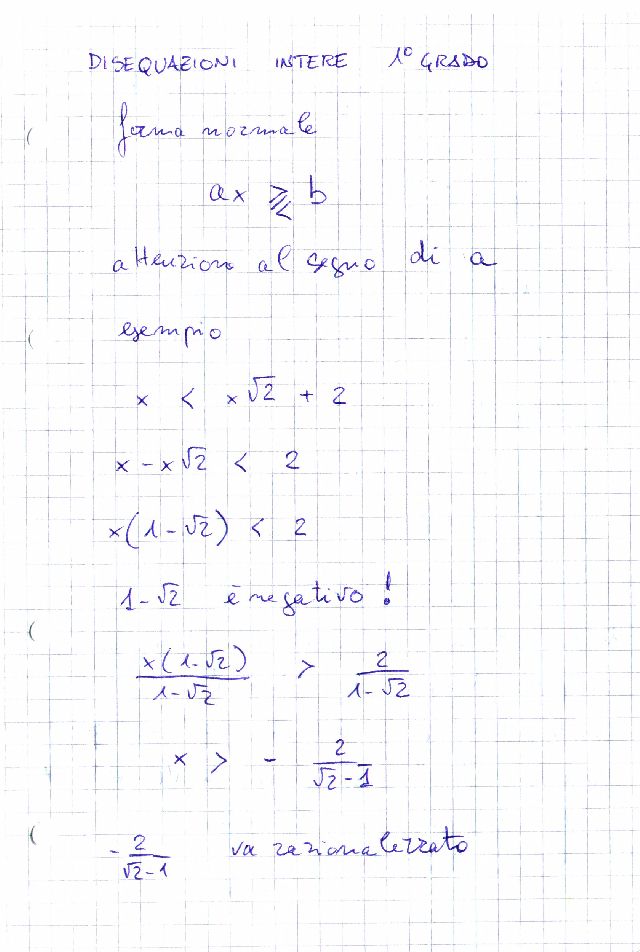 DISEQUAZIONI INTERE 1° GRADO
forma normale
ax ⋛ b
attenzione al segno di a
esempio
x < x√2 + 2
x - x√2 < 2
x(1-√2) < 2
1-√2 è negativo!
x(1-√2)/1-√2 > 2/1-√2
x > - 2/√2-1
- 2/√2-1 va razionalizzato